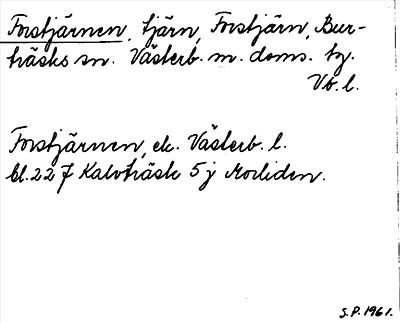 Forstjärnen, tjärn, Forstjärn, Bur-
träsks sn. Västerb. m. doms. tg.
Vb. l.
Forstjärnen, ek. Västerb. l.
bl. 22 J Kalvträsk 5 j Morliden.
S.P. 1961.